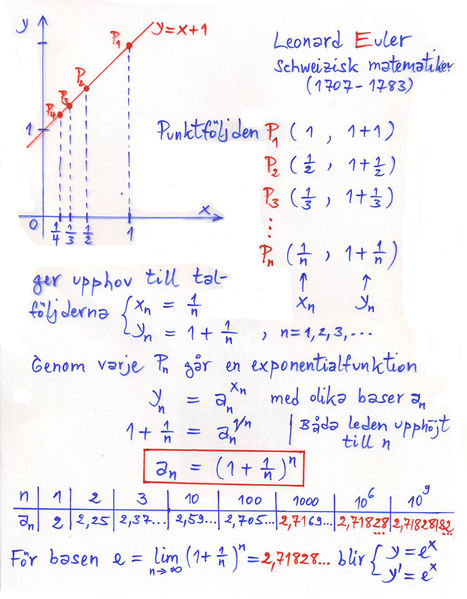 y
y = x+1
P1
P2
P3
P4
1
x
0
1/4 1/3 1/2 1
Leonard Euler
Schweizisk matematiker
(1707 - 1783)
Punktföljden P1 ( 1 , 1+1 )
P2 ( 1/2 , 1+1/2 )
P3 ( 1/3 , 1+1/3 )
⋮
Pn ( 1/n , 1+1/n )
↑ ↑
xn yn
ger upphov till tal-
följderna { xn = 1/n
yn = 1 + 1/n , n = 1, 2, 3, ...
Genom varje Pn går en exponentialfunktion
yn = an^xn med olika baser an
1 + 1/n = an^1/n | Båda leden upphöjt
till n
an = (1 + 1/n)^n
n | 1 | 2 | 3 | 10 | 100 | 1000 | 10^6 | 10^9
an | 2 | 2,25 | 2,37... | 2,59... | 2,705... | 2,7169... | 2,71828... | 2,71828182...
För basen e = lim n→∞ (1 + 1/n)^n = 2,71828... blir { y = e^x
y' = e^x